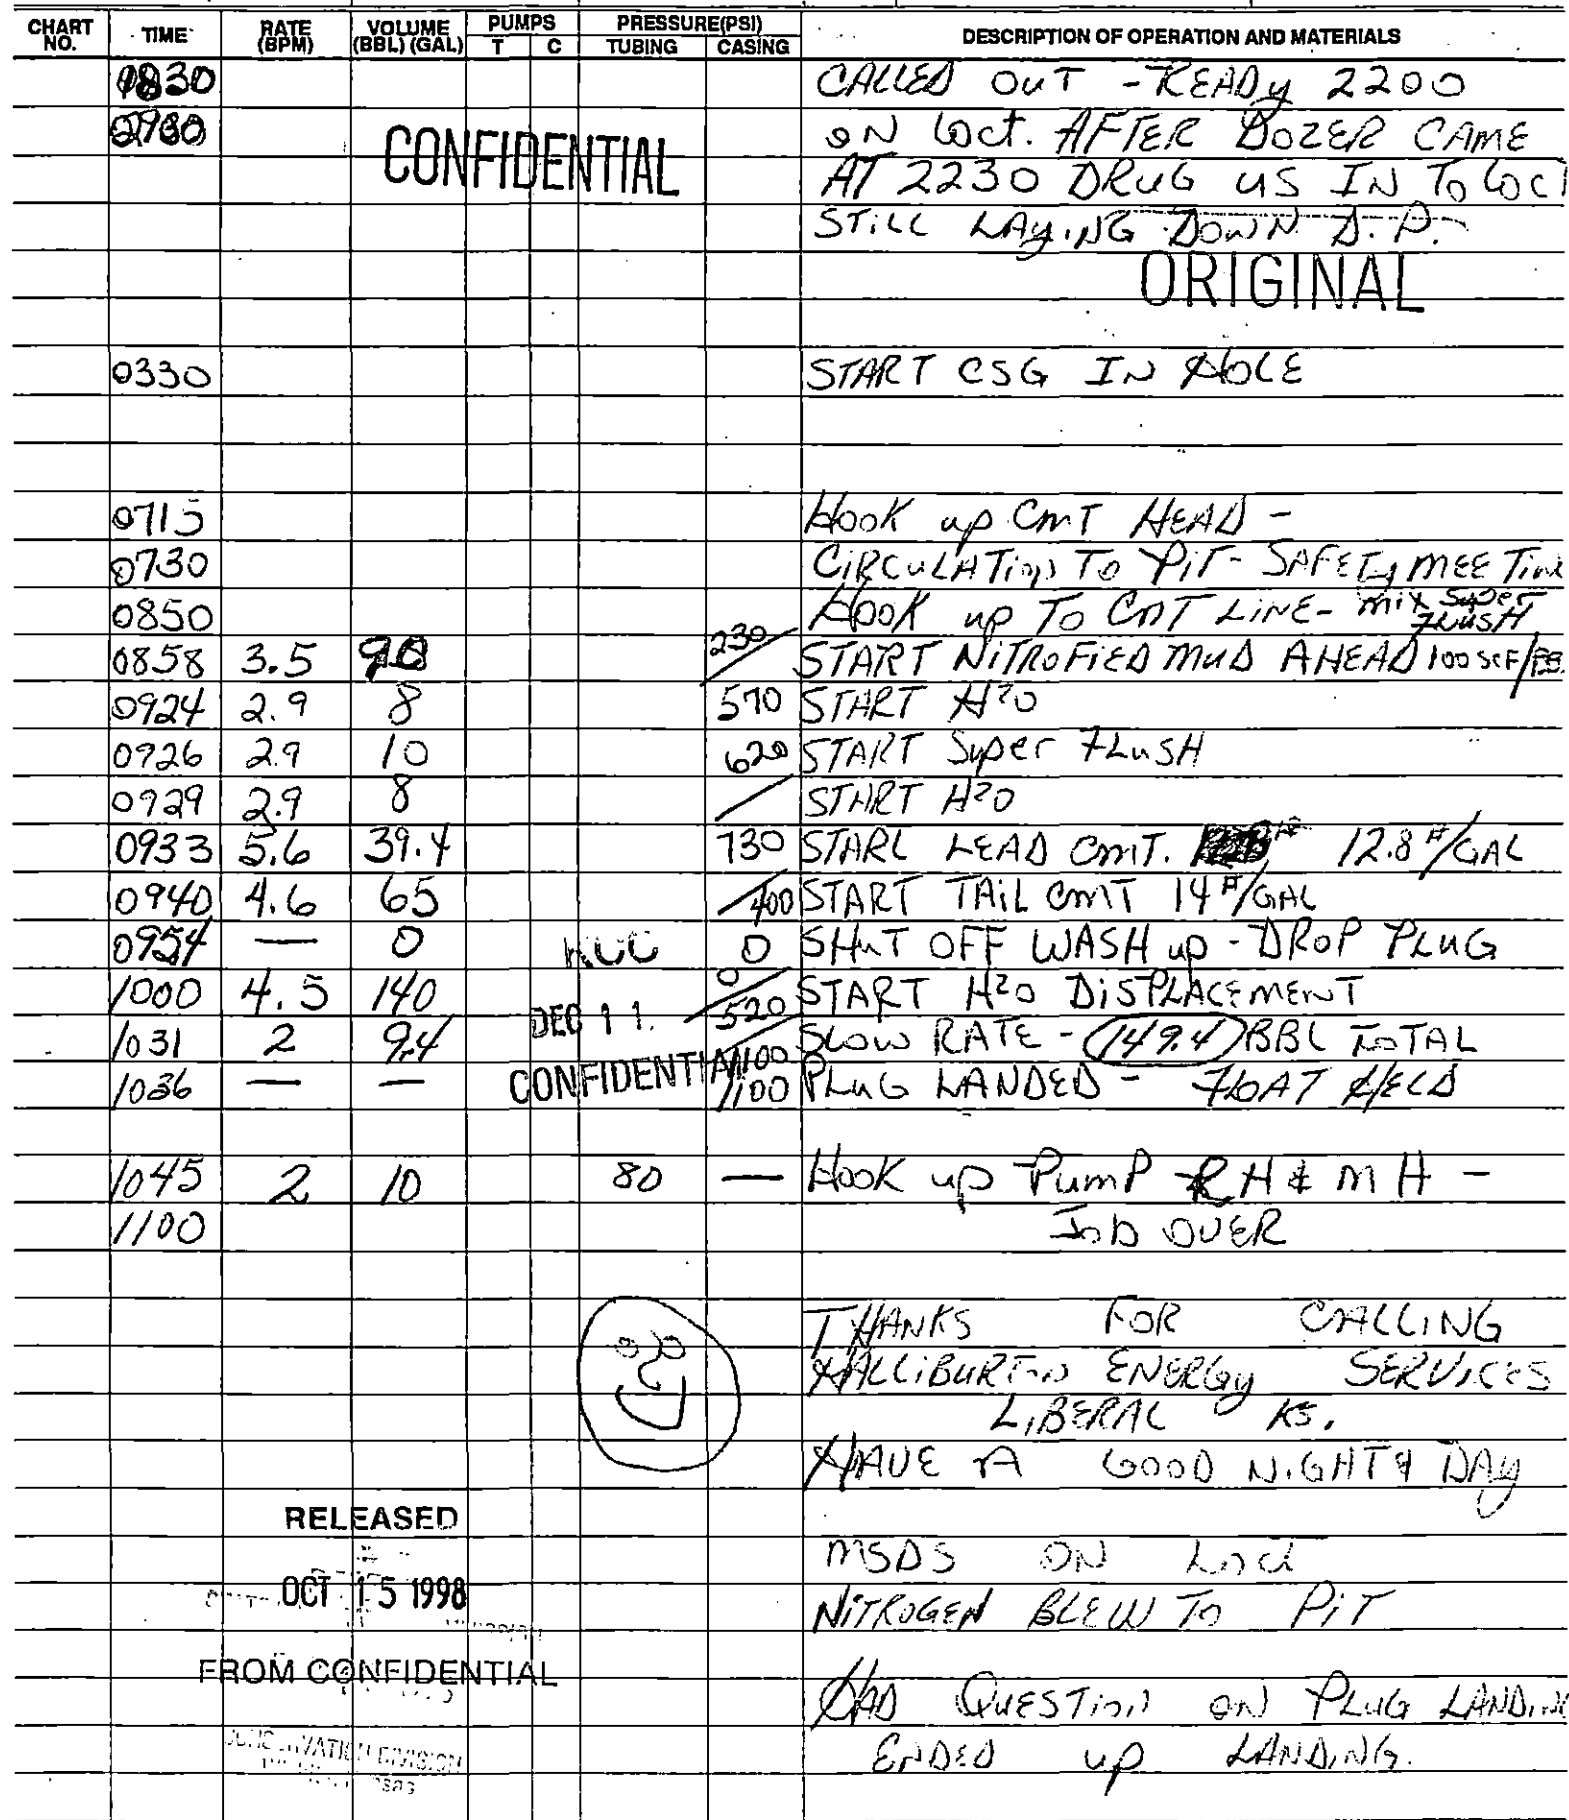 CHART NO. TIME RATE (BPM) VOLUME (BBL) (GAL) PUMPS T C PRESSURE(PSI) TUBING CASING DESCRIPTION OF OPERATION AND MATERIALS
CALLED OUT - READY 2200
ON LOCT. AFTER DOZER CAME
CONFIDENTIAL
AT 2230 DRUG US IN TO LOCT
STILL LAYING DOWN D.P.
ORIGINAL
0330 START CSG IN HOLE
0715 HOOK UP CMT HEAD -
0730 CIRCULATION TO PIT - SAFETY MEETIN
0850 HOOK UP TO CMT LINE - MIX SUPER FLUSH
0858 3.5 230/ START NITROFIED MUD AHEAD 100 SCF/
0924 2.9 8 570 START H2O
0926 2.9 10 620 START SUPER FLUSH
0929 2.9 8 / START H2O
0933 5.6 39.4 730 START LEAD CMT. 12.8 #/GAL
0940 4.6 65 /400 START TAIL CMT 14 #/GAL
0954 — 0 KCC 0 SHUT OFF WASH UP - DROP PLUG
1000 4.5 140 0/520 START H2O DISPLACEMENT
DEC 11
1031 2 9.4 /1100 SLOW RATE - 149.4 BBL TOTAL
CONFIDENTIAL
1036 — — 1100 PLUG LANDED - FLOAT HELD
1045 2 10 80 — HOOK UP PUMP RH & MH -
1100 JOB OVER
THANKS FOR CALLING
HALLIBURTON ENERGY SERVICES
LIBERAL KS.
HAVE A GOOD NIGHT & DAY
RELEASED
MSDS ON LOCT
OCT 15 1998
NITROGEN BLEW TO PIT
FROM CONFIDENTIAL
HAD QUESTION ON PLUG LANDIN
ENDED UP LANDING.